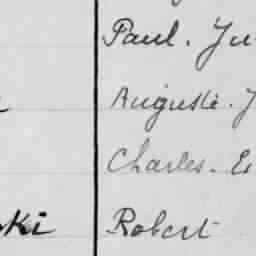 Paul. Ju
Auguste. J
Charles. E
ski Robert